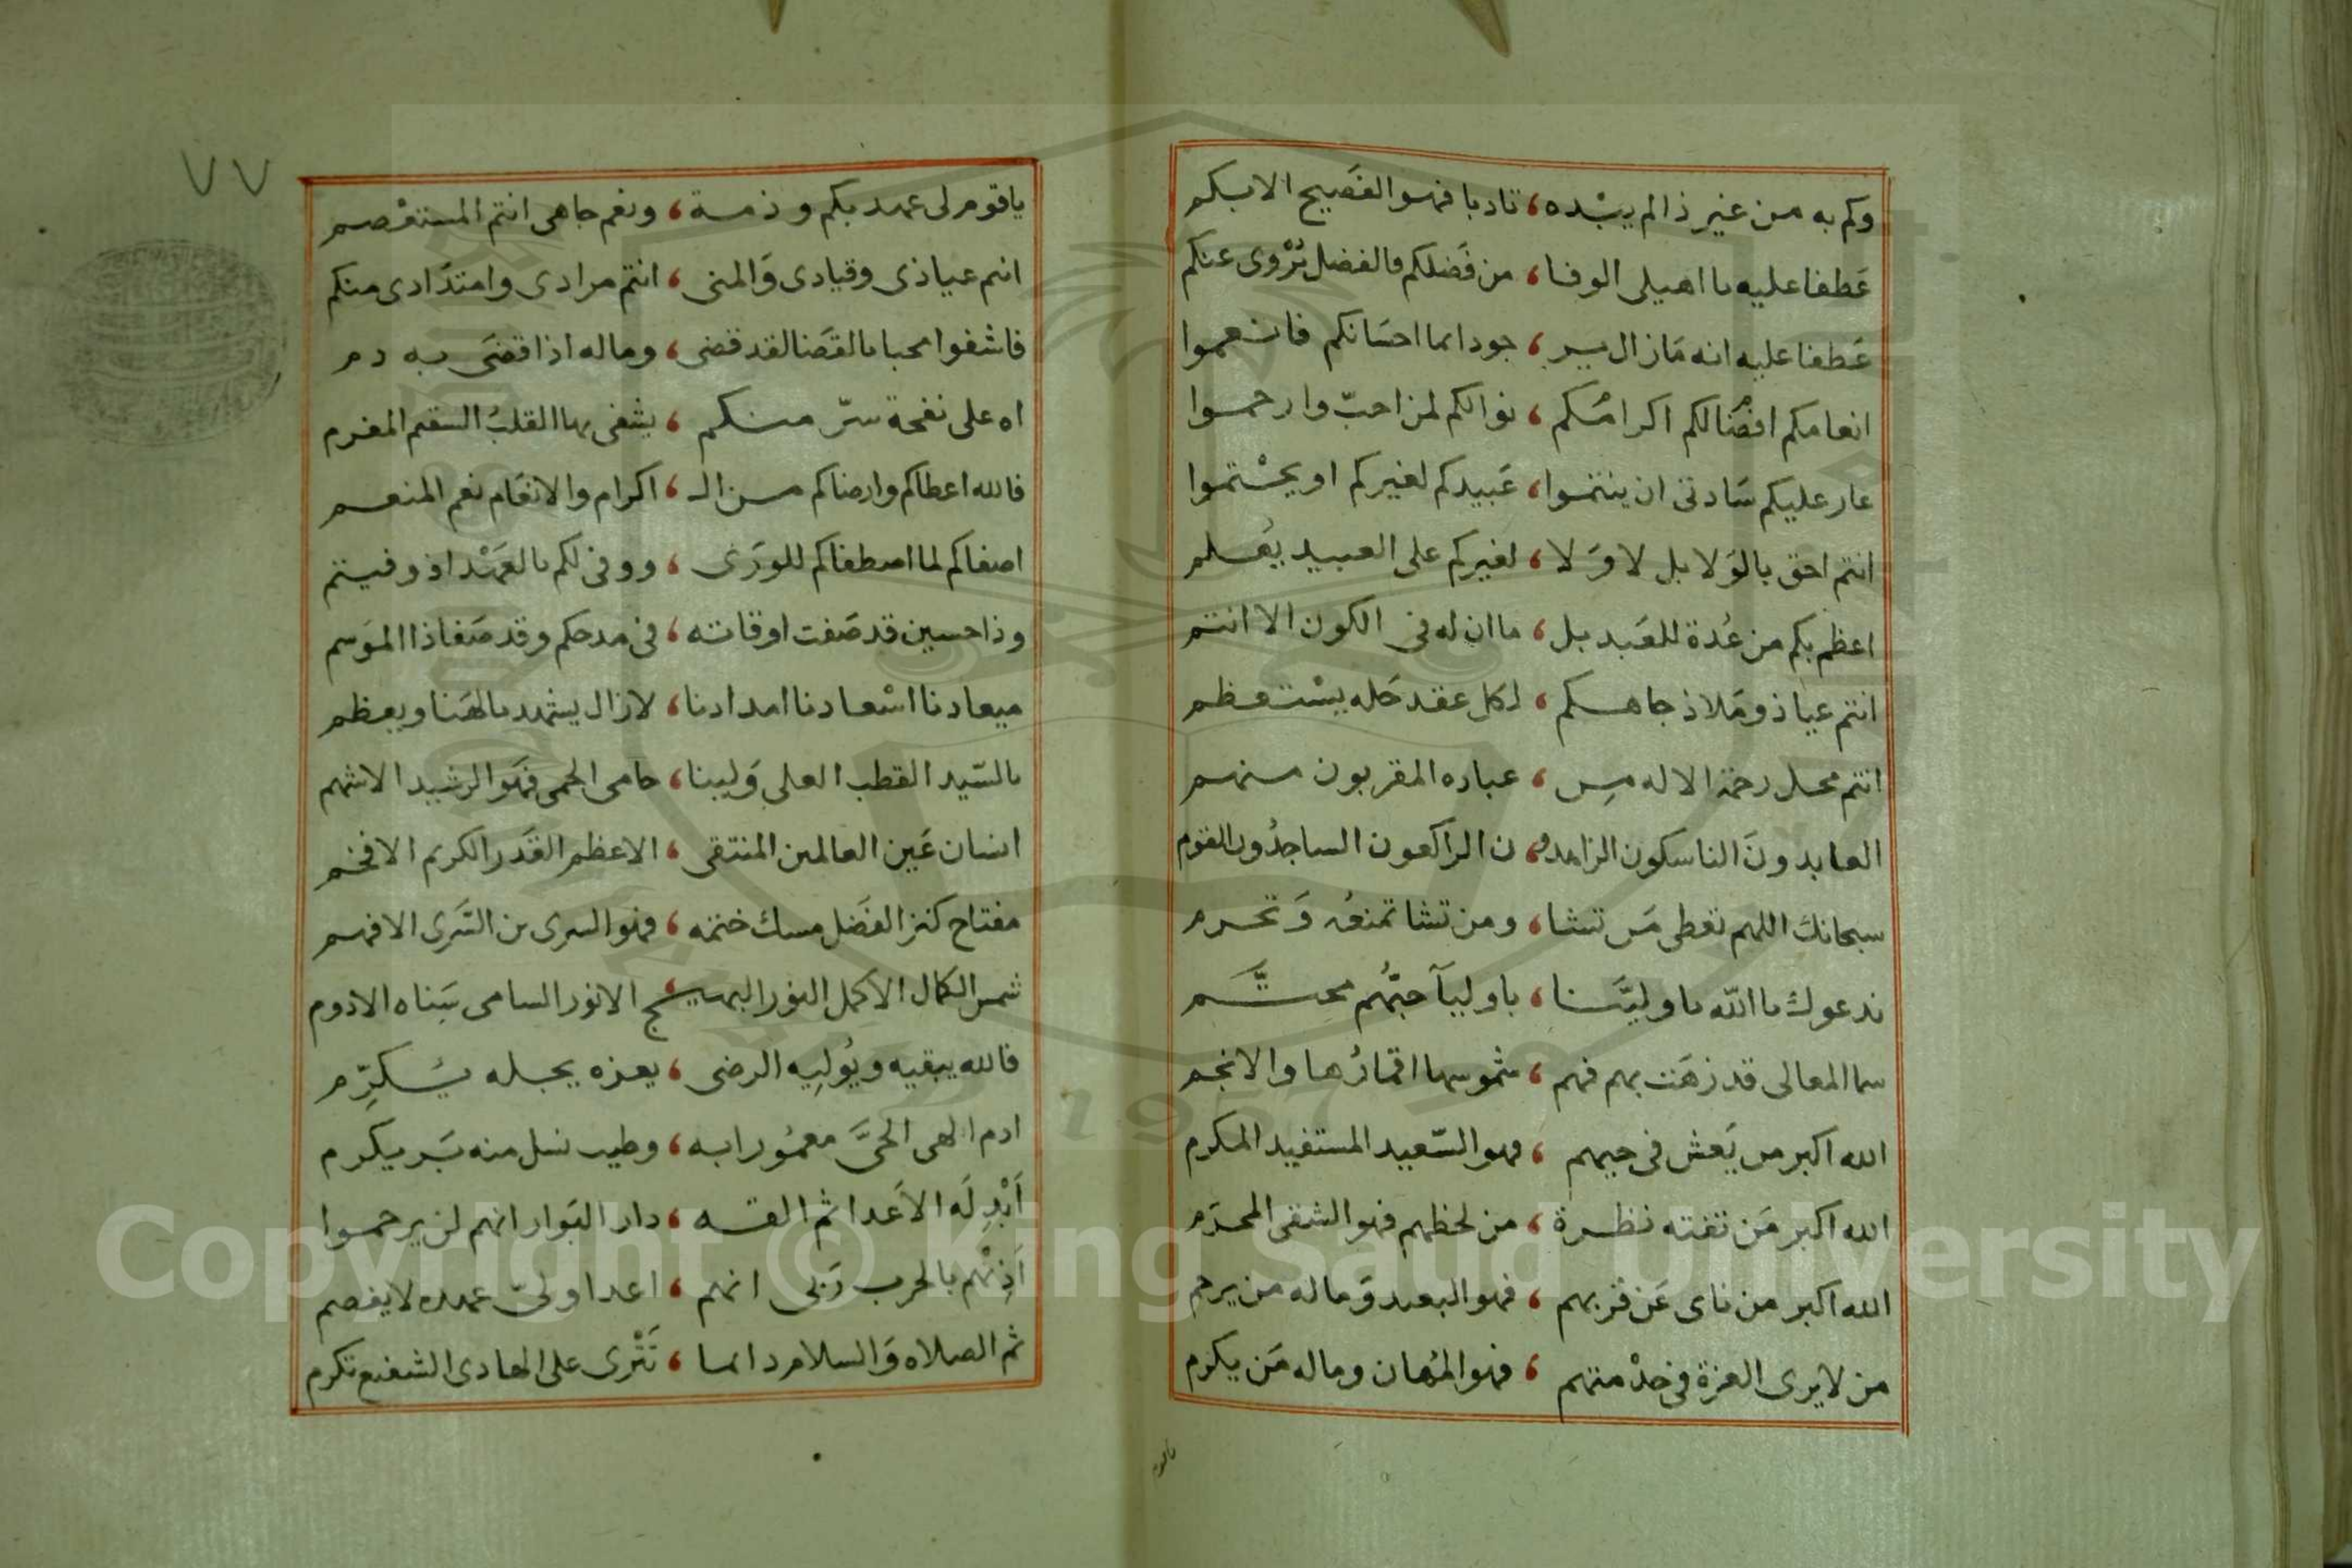 وكم به من غير ذا لم يبده ، تادبا فهو الفصيح الابكم
عطفا عليه يا اهيلى الوفا ، من فضلكم فالفضل يروى عنكم
عطفا عليه انه مازال ، جودا احسانكم فانعموا
انعامكم افضالكم اكرامكم ، نوالكم لمن احب وارحموا
عار عليكم سادتى ان ينتموا ، عبيدكم لغيركم او يحتموا
انتم احق بالولا بل لا ولا ، لغيركم على العبيد يعلم
اعظم بكم من عدة للعبد بل ، ما ان له فى الكون الا انتم
انتم عياذ وملاذ جاهكم ، لكل عقد حله يستعظم
انتم محل رحمة الاله من ، عباده المقربون منهم
العابدون الناسكون الزاهدو ، ن الراكعون الساجدون القوم
سبحانك اللهم تعطى من تشا ، ومن تشا تمنعه وتحرم
ندعوك يا الله يا ولينا ، يا وليا حبهم محتم
سما المعالى قد زهت بهم فهم ، شموسها اقمارها والانجم
الله اكبر من يعش فى حيهم ، فهو السعيد المستفيد المكرم
الله اكبر من تفته نظرة ، من لحظهم فهو الشقى المحرم
الله اكبر من ناى عن قربهم ، فهو البعيد وماله من يرحم
من لا يرى العزة فى خدمتهم ، فهو المهان وماله من يكرم
٧٧
يا قوم لى عهد بكم وذمة ، ونعم جاهى انتم المستعصم
انتم عياذى وقيادى والمنى ، انتم مرادى وامتدادى منكم
فاشفوا محبا بالقضا لقد قضى ، وماله اذا قضى به دم
اه على نفحة سر منكم ، يشفى بها القلب السقيم المغرم
فالله اعطاكم وارضاكم من الـ ، اكرام والانعام نعم المنعم
اصفاكم لما اصطفاكم للورى ، ووفى لكم بالعهد اذ وفيتم
وذا حسين قد صفت اوقاته ، فى مدحكم وقد صفا ذا الموسم
ميعادنا اسعادنا امدادنا ، لازال يشهد بالهنا ويعظم
بالسيد القطب العلى ولينا ، حامى الحمى فهو الرشيد الاشهم
انسان عين العالمين المنتقى ، الاعظم القدر الكريم الافخم
مفتاح كنز الفضل مسك ختمه ، فهو السرى بن السرى الافهم
شمس الكمال الاكمل النور البهيج ، الانور السامى سناه الادوم
فالله يبقيه ويوليه الرضى ، يعزه يجله يكرم
ادم الهى الحى معمورا به ، وطيب نسل منه بر يكرم
ابد له الاعدا ثم القه ، دار البوار انهم لن يرحموا
اذنهم بالحرب ربى انهم ، اعدا ولى عهده لا يفصم
ثم الصلاه والسلام دائما ، تترى على الهادى الشفيع تكرم
Copyright © King Saud University
1957